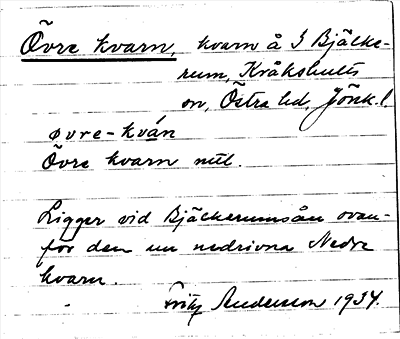 Övre kvarn, kvarn å S Bjälke-
rum, Kråkshults
sn, Östra hd, Jönk. l
øvre-kván
Övre kvarn mtl.
Ligger vid Bjälkerumsån ovan-
för den nu nedrivna Nedre
kvarn.
Fritz Andersson 1934.